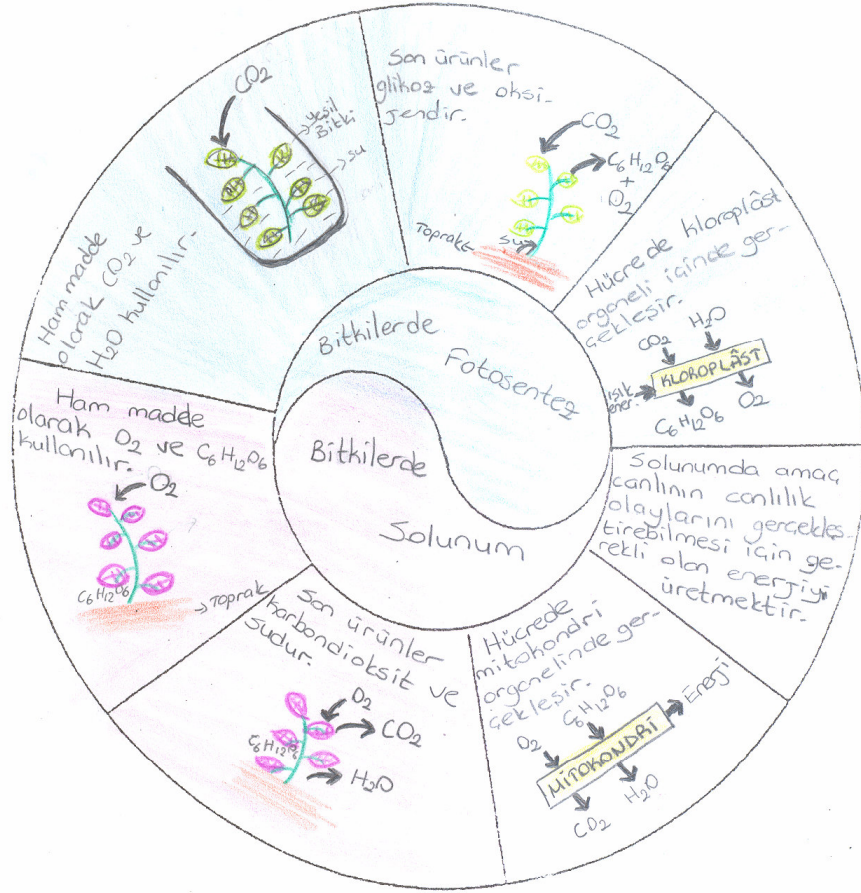 Bitkilerde
Fotosentez
Bitkilerde
Solunum
Ham madde
olarak CO2 ve
H2O kullanılır.
CO2
yeşil
Bitki
su
Son ürünler
glikoz ve oksi-
jendir.
CO2
C6H12O6
+
O2
Toprak
su
Hücrede kloroplâst
organeli içinde ger-
çekleşir.
CO2
H2O
Işık
ener.
KLOROPLÂST
C6H12O6
O2
Solunumda amaç
canlının canlılık
olaylarını gerçekleş-
tirebilmesi için ge-
rekli olan enerjiyi
üretmektir.
Hücrede
mitokondri
organelinde ger-
çekleşir.
O2
C6H12O6
Enerji
MİTOKONDRİ
CO2
H2O
Son ürünler
karbondioksit ve
sudur.
O2
CO2
C6H12O6
H2O
Ham madde
olarak O2 ve C6H12O6
kullanılır.
O2
C6H12O6
Toprak